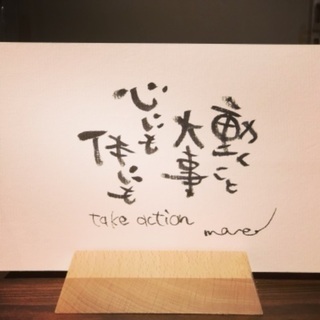 動くこと
大事
心にも
体にも
take action